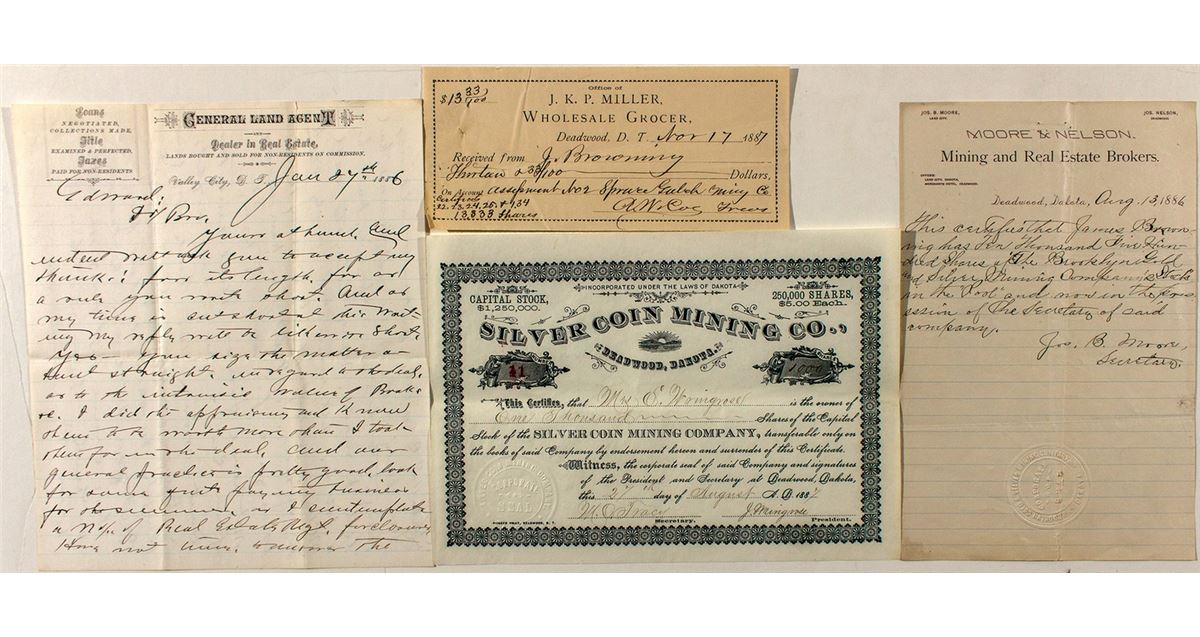 Loans
NEGOTIATED,
COLLECTIONS MADE,
Title
EXAMINED & PERFECTED,
Taxes
PAID FOR NON-RESIDENTS
GENERAL LAND AGENT
AND
Dealer in Real Estate,
LANDS BOUGHT AND SOLD FOR NON-RESIDENTS ON COMMISSION.
Valley City, D. T. Jan 27th 1886
Edward:
Yours at hand. And
you to accept my
thanks: for its length, for as
a rule you write short. And as
my time is
my reply will be likewise short
Yes— your the matter a-
bout straight. in regard to the deal,
as to the intrinsic value of
I did the appraising and know
them to be worth more than I took
them for in the deal, and our
general practice is pretty good, look
for some business
for the
of Real Estate Mtgs. foreclosures
Have not time, to answer the
Office of
J. K. P. MILLER,
WHOLESALE GROCER,
$13 33/100
Deadwood, D. T. Nov 17 1887
Received from J. Browning
Thirteen & 33/100 Dollars,
On Account assessment No 2 Spruce Gulch Ming Co
Certificates
12. 13. 24. 25. & 134
13333 Shares
A. W. Coe Treas
CAPITAL STOCK,
$1,250,000.
INCORPORATED UNDER THE LAWS OF DAKOTA
250,000 SHARES,
$5.00 Each.
SILVER COIN MINING CO.,
DEADWOOD, DAKOTA.
11
1000
This Certifies, that Mrs E. Wringrose is the owner of
One Thousand Shares of the Capital
Stock of the SILVER COIN MINING COMPANY, transferable only on
the books of said Company by endorsement hereon and surrender of this Certificate.
Witness, the corporate seal of said Company and signatures
of the President and Secretary at Deadwood, Dakota,
this 27 day of August A. D. 1887
Secretary. J. Wringrose President.
PIONEER PRINT, DEADWOOD, D. T.
JOS. B. MOORE,
LEAD CITY.
JOS. NELSON,
DEADWOOD.
MOORE & NELSON.
Mining and Real Estate Brokers.
OFFICES:
LEAD CITY, DAKOTA,
MERCHANTS HOTEL, DEADWOOD.
Deadwood, Dakota, Aug. 13, 1886
This certifies that James Brown-
ing has Ten Thousand Five Hun-
dred Shares of The Brooklyn Gold
and Silver Mining Company's Stock
in the "Pool" and now in the Pos-
session of the Secretary of said
company.
Jos. B. Moore,
Secretary.